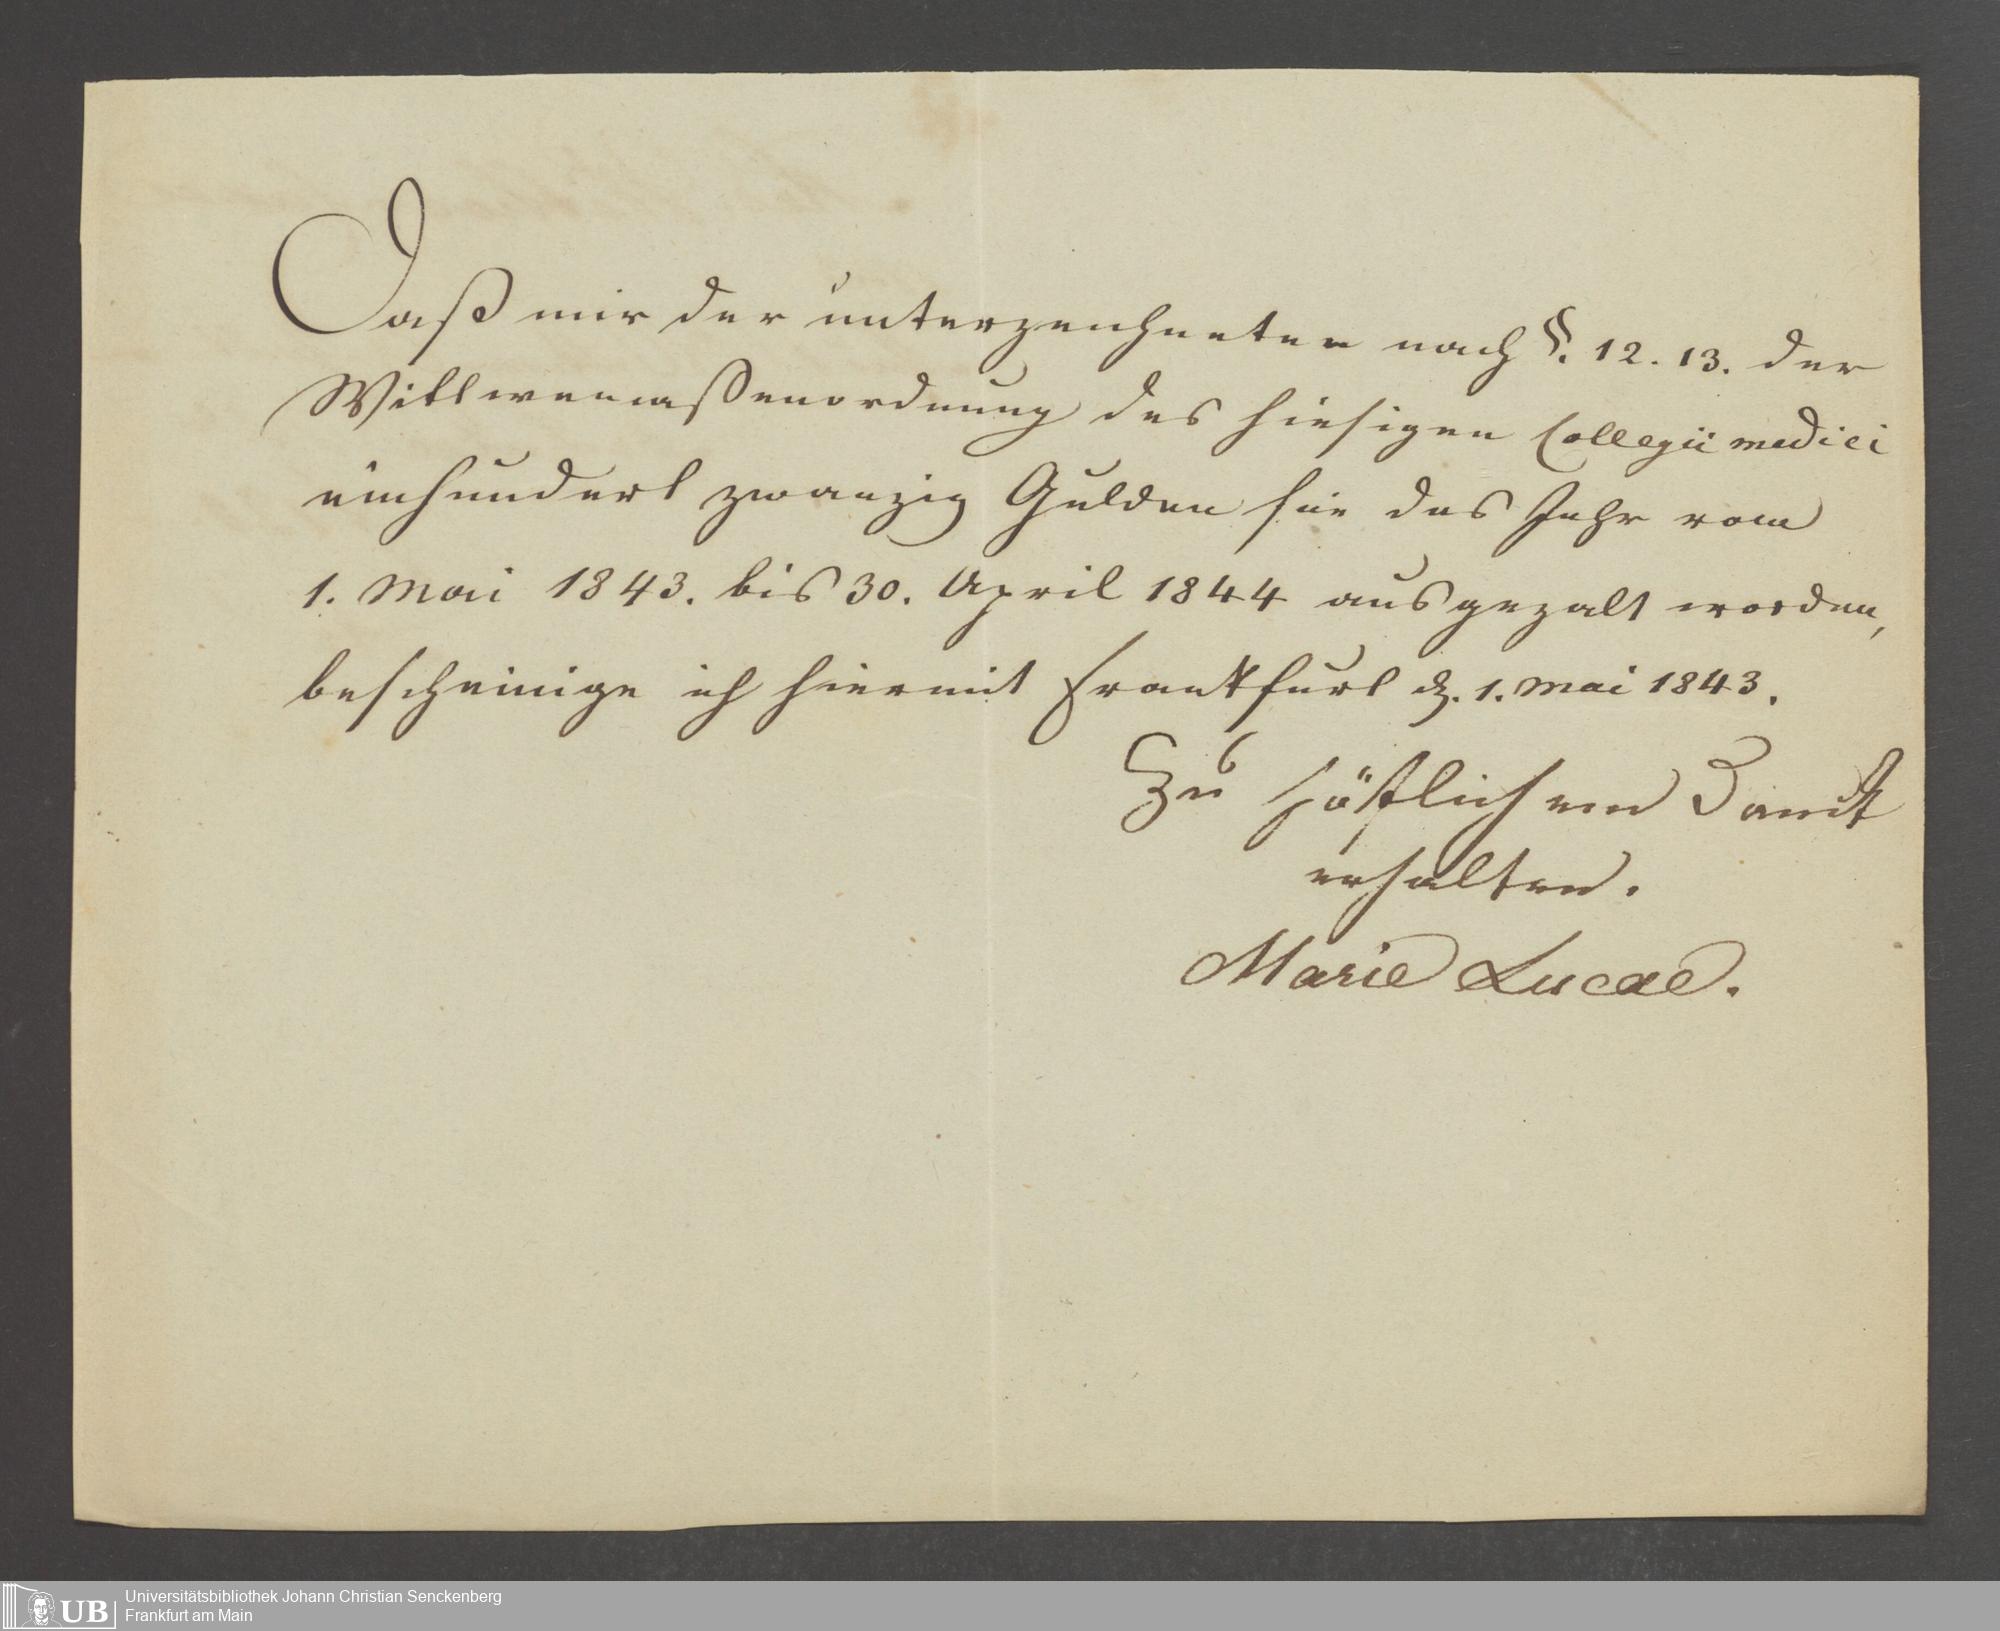 Daß mir der unterzeichneten nach §. 12. 13. der
Wittwencassenordnung des hiesigen Collegii medici
einhundert zwanzig Gulden für das Jahr vom
1. Mai 1843. bis 30. April 1844 ausgezalt worden,
bescheinige ich hiermit Frankfurt d. 1. Mai 1843.
Zu höflichem Danck
erhalten.
Marie Lucae.
UB
Universitätsbibliothek Johann Christian Senckenberg
Frankfurt am Main